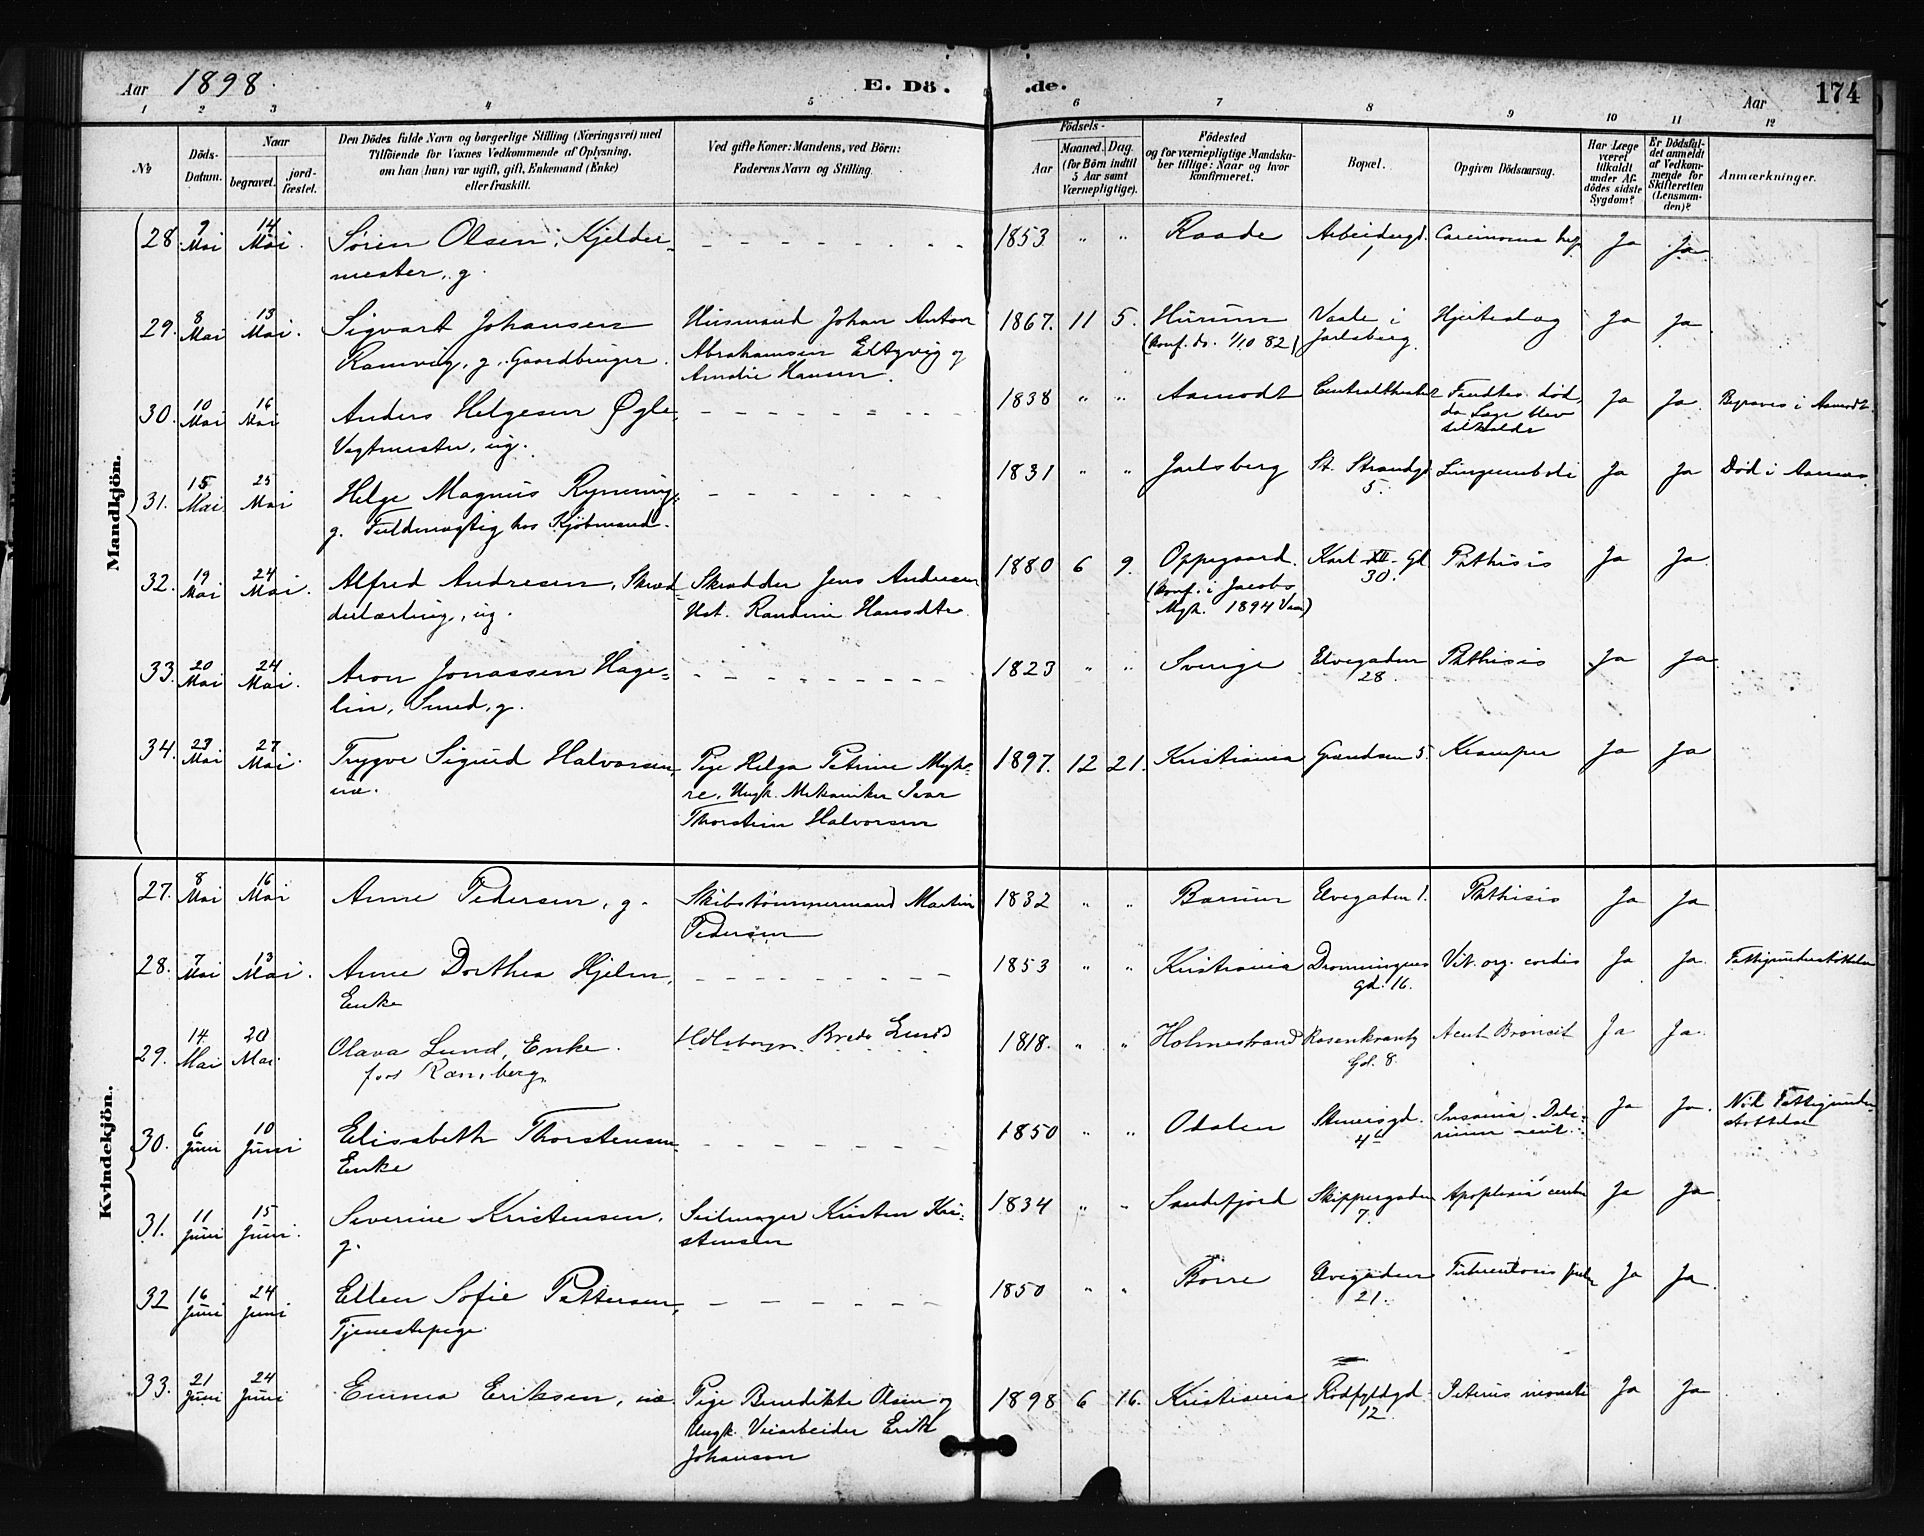 Aar 1898.
E. Dö. .de.
Aar 174
1 2 3 4 5 6 7 8 9 10 11 12
No
Döds-
Datum.
Naar
begravet. jord-
fæstet.
Den Dödes fulde Navn og borgerlige Stilling (Næringsvei) med
Tilföiende for Voxnes Vedkommende af Oplysning,
om han (hun) var ugift, gift, Enkemand (Enke)
eller fraskilt.
Ved gifte Koner: Mandens, ved Börn:
Faderens Navn og Stilling.
Födsels-
Aar
Maaned. Dag.
(for Börn indtil
5 Aar samt
Værnepligtige).
Födested
og for værnepligtige Mandska-
ber tillige: Naar og hvor
konfirmeret.
Bopæl.
Opgiven Dödsaarsag.
Har Læge
været
tilkaldt
under Af-
dödes sidste
Sygdom?
Er Dödsfal-
det anmeldt
af Vedkom-
mende for
Skifteretten
(Lensman-
den)?
Anmærkninger.
Mandkjön.
28. 7 Mai 14 Mai Sören Olsen, Kjelder- 1853 " " Raade Arbeidergd. Carcinoma hep. Ja Ja
mester, g. 1
29. 8 Mai 13 Mai. Sigvart Johansen Husmand Johan Anton 1867. 11 5. Hurum Vaale i Hjerteslag Ja Ja
Ramvig, g. Gaardbruger. Abrahamsen og (Konf. do. 1/10 82) Jarlsberg.
Amalie Hansen.
30. 10 Mai 16 Mai Anders Helgesen Øgle, 1838 " " Aamodt Centraltheatret Fundtes död, Ja Ja. Begraves i Aamodt
Vagtmester, ug. da Læge blev
tilkaldt
31. 15 Mai 25 Mai Helge Magnus Rynning, 1831 " " Jarlsberg St. Strandgd. Lungeemboli Ja Ja Död i Aasnæs.
g. Fuldmægtig hos Kjöbmand. 5.
32. 19 Mai 24 Mai. Alfred Andresen, Skræd- Skrædder Jens Andresen 1880 6 9. Oppegaard. Karl XII. Gd. Phthisis Ja Ja.
derlærling, ug. Hst. Randine Hansdtr. (Konf. i Jacobs 30.
Mgh. 1894 Vaar)
33. 20 Mai 24 Mai. Aron Jonassen Hage- 1823 " " Sverige Elvegaden Phthisis Ja Ja.
lin, Smed, g. 28.
34. 23 Mai 27 Mai. Trygve Sigurd Halvorsen, Pige Helga Petrine Myh- 1897. 12 21. Kristiania Grændsen 5. Kramper Ja Ja
uæ. re, Ungk. Mekaniker Ivar
Thorstein Halvorsen
Kvindekjön.
27. 8 Mai 16 Mai Anne Pedersen, g. Skibstömmermand Martin 1832 " " Bærum Elvegaden 1. Phthisis Ja Ja
Pedersen
28. 7 Mai 13 Mai. Anne Dorthea Hjelm, 1853 " " Kristiania Dronningens Vit. org. cordis Ja Ja. Fattigunderstöttelse
Enke gd. 16.
29. 14 Mai 20 Mai Olava Lund, Enke. Bredo Lund 1818. " " Holmestrand Rosenkrantz Acut Broncit Ja Ja.
Gd. 8.
30. 6 Juni 10 Juni Elisabeth Thorstensen 1850 " " Odalen Stenersgd. Insania. Deli- Ja Ja. Nöd Fattigunder-
Enke 4 rium acut. stöttelse
31. 11 Juni 15 Juni. Severine Kristensen. Seilmager Kristen Kri- 1834 " " Sandefjord Skippergaden Apoplexia cerebri Ja Ja
g. stensen 7.
32 16 Juni 24 Juni Ellen Sofie Pettersen, 1850 " " Borre Elvegaden Tuberculosis pulm Ja Ja.
Tjenestepige. 21.
33. 21 Juni 24 Juni Emma Eriksen, uæ Pige Benedikte Olsen og 1898 6 16. Kristiania Rödfyldgd. Icterus neonati Ja Ja
Ungk. Veiarbeider Erik 12.
Johanson